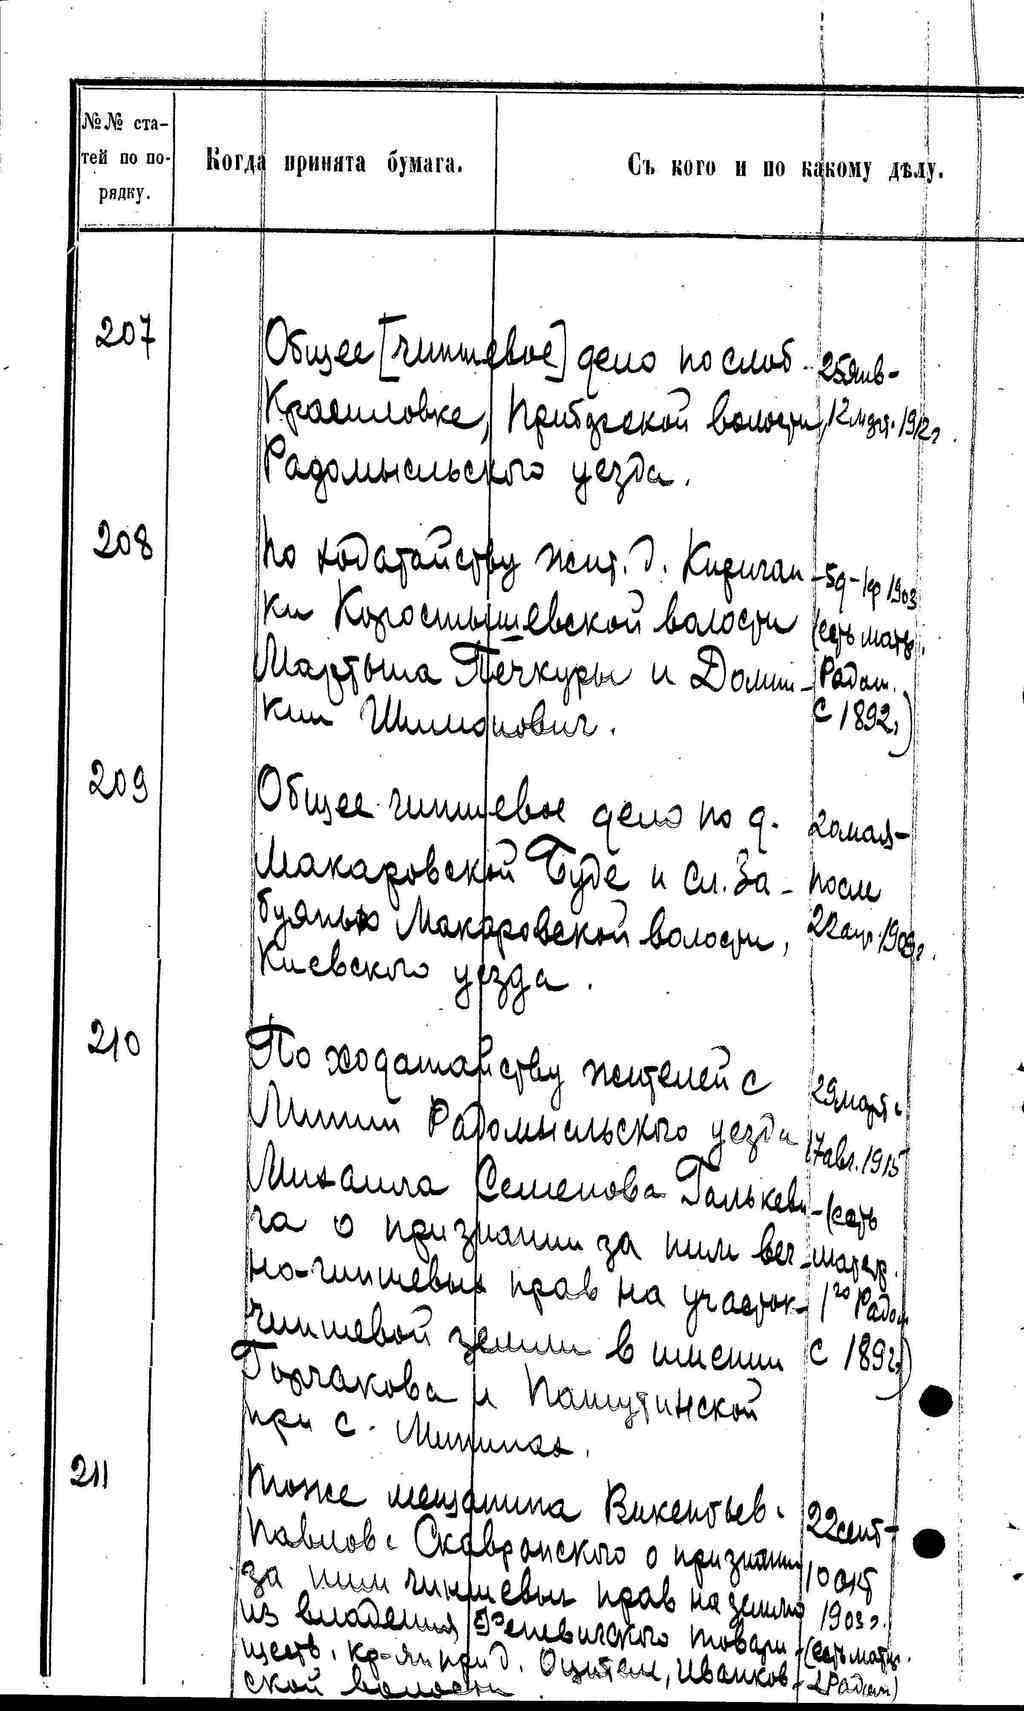 №№ ста-
тей по по-
рядку.
Когда принята бумага.
Съ кого и по какому дѣлу.
207
Общее [чиншевое] дело по слоб.
Красиловке, Прибузской волости,
Радомысльского уезда.
25 янв-
12 мая. 1912 г.
208
По ходатайству жит. д. Кириган
ки Коростышевской волости
Мартына Печкуры и Домин-
кии Шимонович.
(есть матер.
Радом.
с 1892.)
209
Общее чиншевое дело по д.
Макаровской Буде и сл. За-
буянью Макаровской волости,
Киевского уезда.
20 мая-
после
22 апр. 1909 г.
210
По ходатайству жителей с
Минин Радомысльского уезда
Михаила Семенова Галькеви-
ча о признании за ним веч-
но-чиншевых прав на участок-
чиншевой земли в имении
Горчакова и Пашутинской
при с. Мининах.
29 марта
17 авг. 1915
(есть
матер.
1го Радом
с 1892)
211
Тоже мещанина Викентьев.
Павлов. Скавронского о признании
за ним чиншевых прав на землю
из владения Феневичского товари-
ществ. кр-ян при д. Оцители, Иванков-
ской волости
22 сент-
10 окт
1903 г.
(есть матер.
Радом)